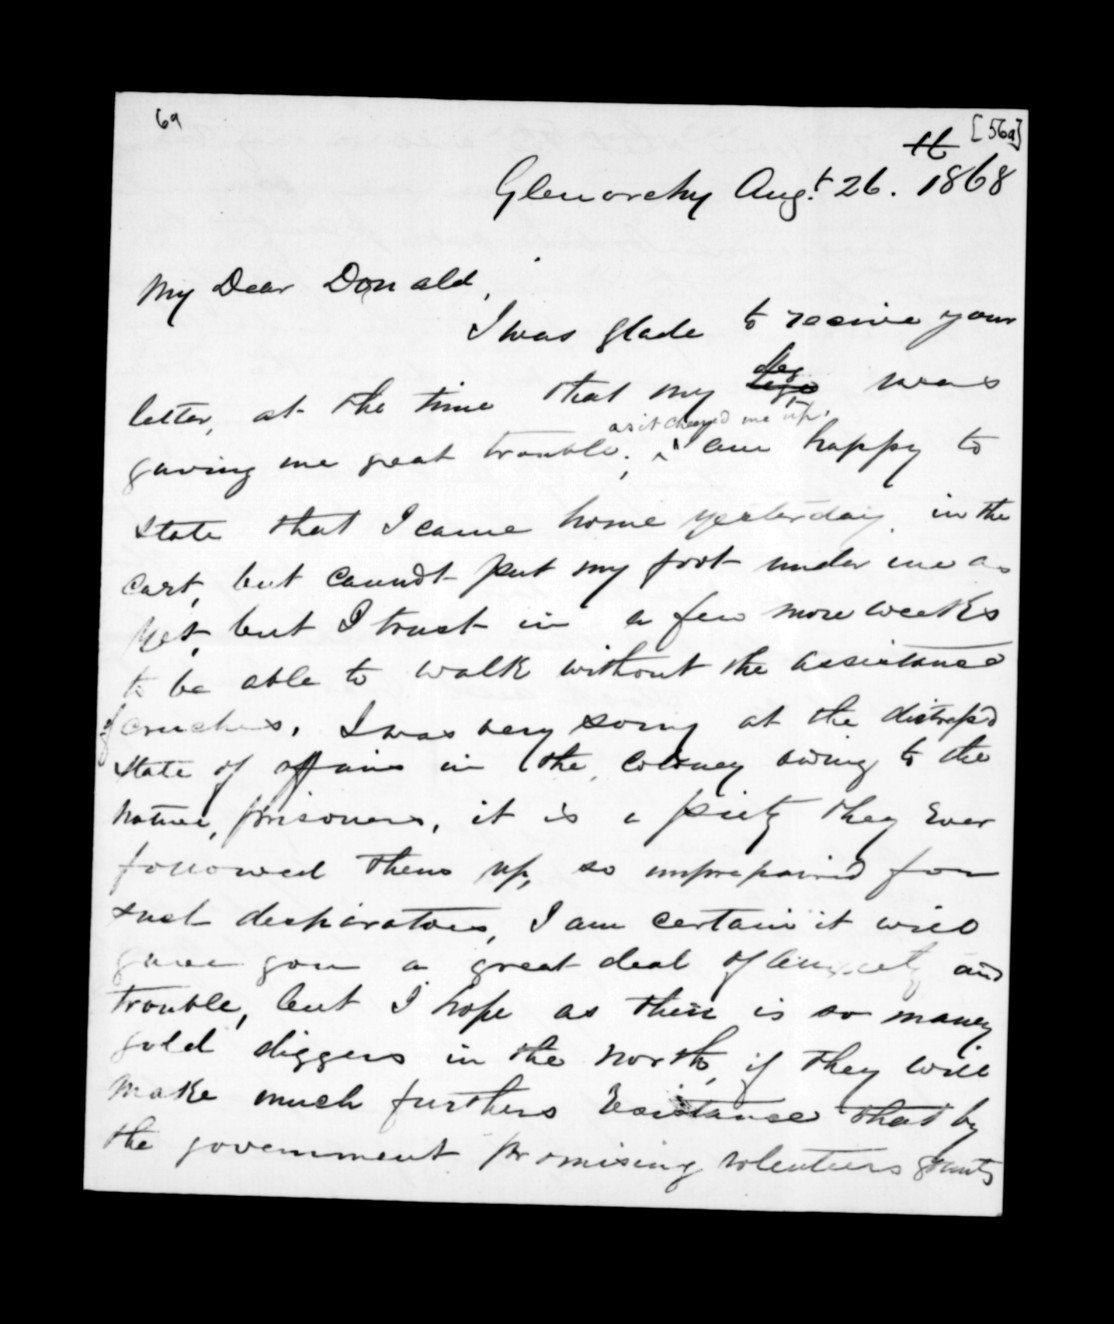 6a
[56a]
16
Glenorchy Augt. 26. 1868
My Dear Donald,
I was glade to receive your
leg
letter, at the time that my legs was
as it cheeyed me up,
gaving me great trouble; ^ I am happy to
state that I came home yesterday in the
cart, but cannot put my foot under me as
yet, but I trust in a few more weeks
to be able to walk without the assistance
of cruches. I was very sorry at the distrap'd
state of affairs in the coloney owing to the
native, prisoners, it is a piety they ever
followed them up, so unprepaired for
such desparatoes, I am certain it will
gave you a great deal of anxiety and
trouble, but I hope as their is so maney
gold diggers in the North, if they will
make much furthers resistance that by
the government promising volenteers grants